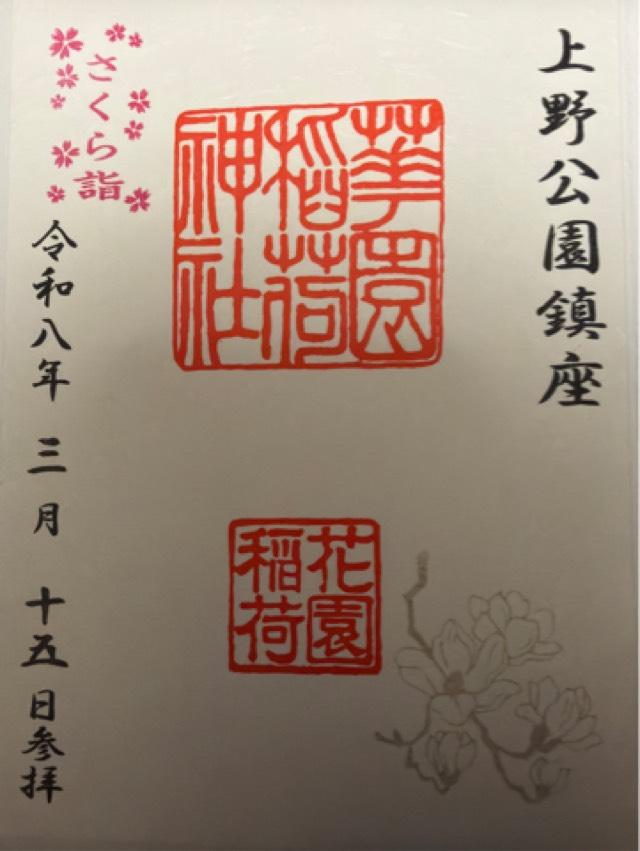 上野公園鎮座
華園
稲荷
神社
花園
稲荷
さくら詣
令和八年 三月 十五日参拝